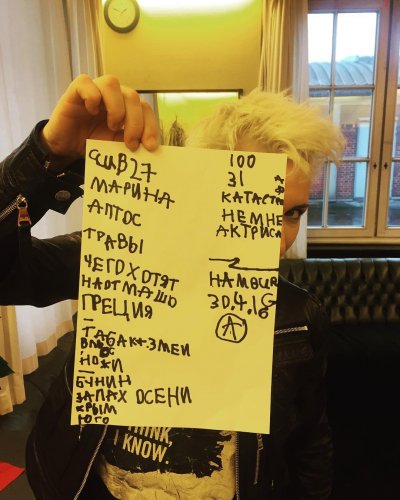 КЛУБ 27
МАРИНА
АПТОС
ТРАВЫ
ЧЕГО ХОТЯТ
НАОТМАШЬ
ГРЕЦИЯ
ТАБАК+ЗМЕИ
НОЖИ
БУНИН
ЗАПАХ ОСЕНИ
КРЫМ
ЮГО
100
31
КАТАСТР
НЕМНЕ
АКТРИСА
HAMBURG
30.4.16
A
THINK,
I KNOW